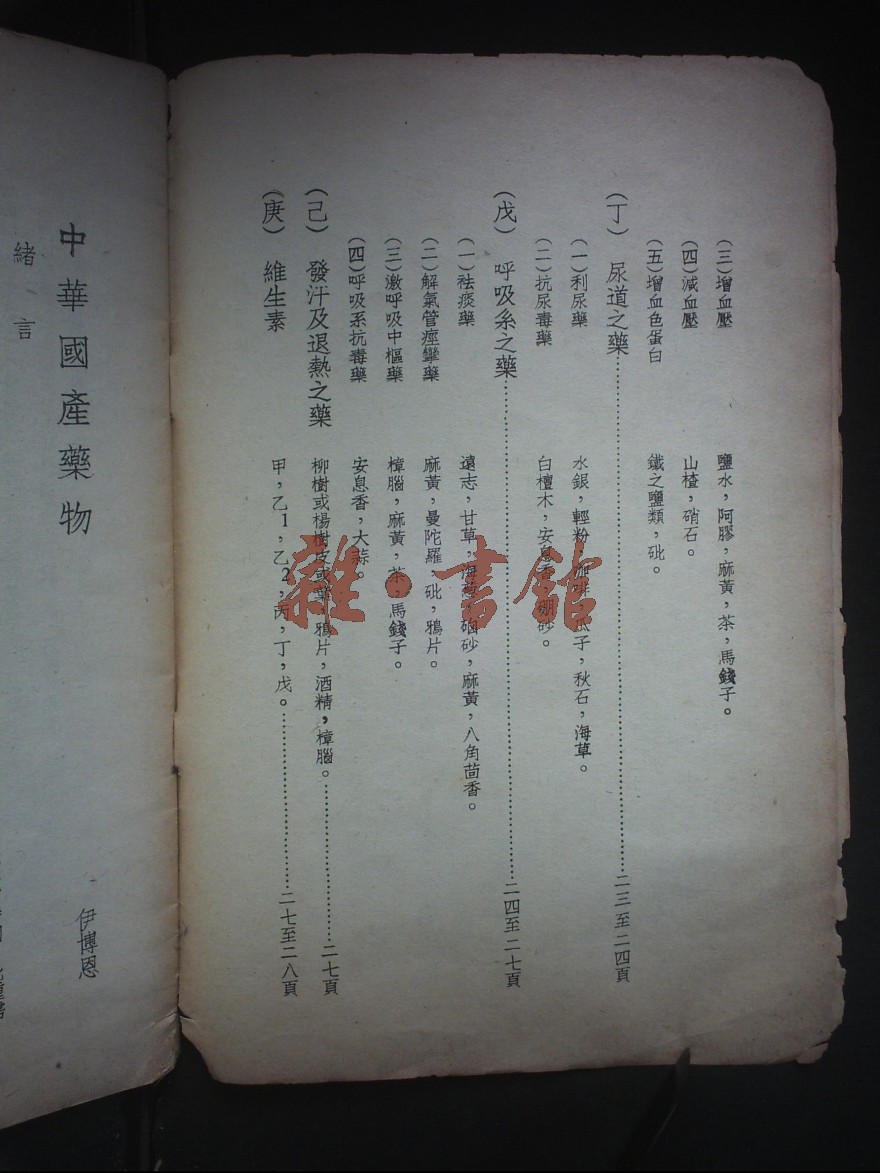 (三)增血壓 鹽水，阿膠，麻黃，茶，馬錢子。
(四)減血壓 山楂，硝石。
(五)增血色蛋白 鐵之鹽類，砒。
(丁) 尿道之藥……二三至二四頁
(一)利尿藥 水銀，輕粉，咖啡，瓜子，秋石，海草。
(二)抗尿毒藥 白檀木，安息香，硼砂。
(戊) 呼吸系之藥……二四至二七頁
(一)祛痰藥 遠志，甘草，海葱，硇砂，麻黃，八角茴香。
(二)解氣管痙攣藥 麻黃，曼陀羅，砒，鴉片。
(三)激呼吸中樞藥 樟腦，麻黃，茶，馬錢子。
(四)呼吸系抗毒藥 安息香，大蒜。
(己) 發汗及退熱之藥 柳樹或楊樹皮或葉，鴉片，酒精，樟腦。……二七頁
(庚) 維生素 甲，乙1，乙2，丙，丁，戊。……二七至二八頁
中華國產藥物
伊博恩
緒言
雜·書館